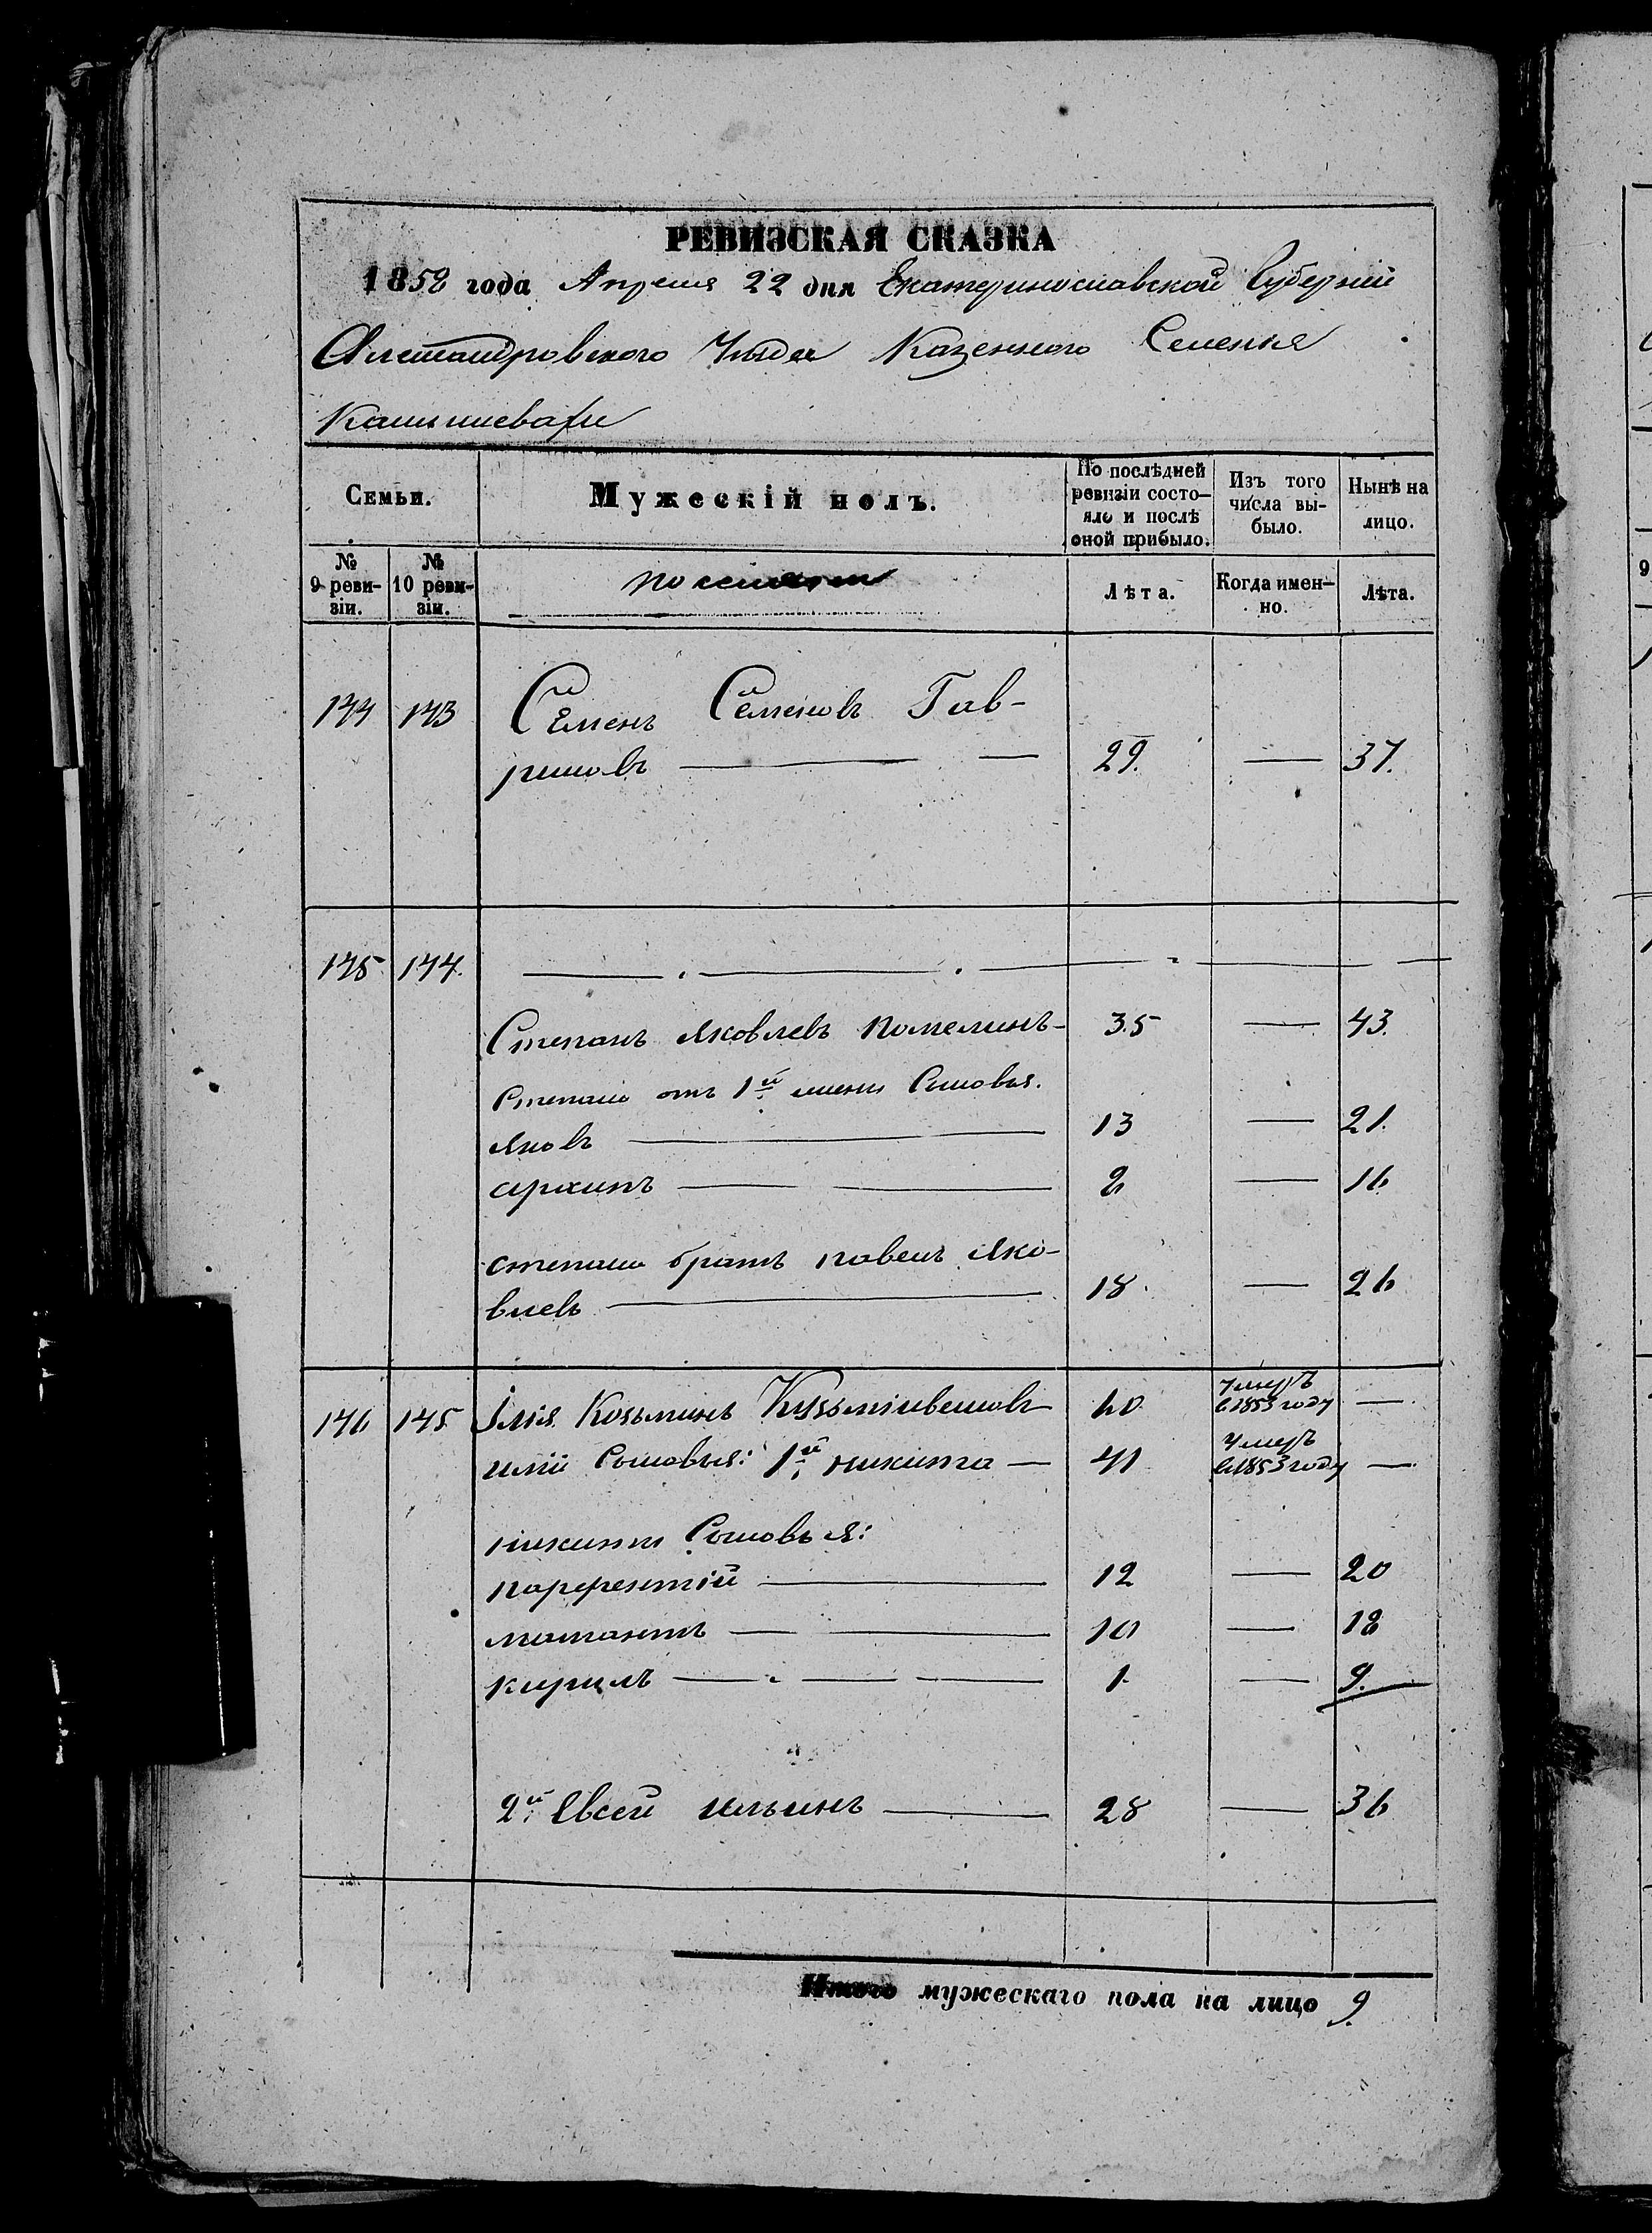 РЕВИЗСКАЯ СКАЗКА
1858 года Апреля 22 дня Екатеринославской Губерніи
Александровского Уезда Казенного Селенія
Камышевахи
Семьи.
Мужескій полъ.
По послѣдней ревизіи состояло и послѣ оной прибыло.
Изъ того числа выбыло.
Нынѣ на лицо.
№ 9 ревизіи.
№ 10 ревизіи.
Лѣта.
Когда именно.
Лѣта.
144 143 Семенъ Семеновъ Гав-
риловъ — — 29. — 37.
145 144.
Степанъ Яковлевъ Потелинъ- 35 — 43.
Степана отъ 1й жены Сыновья.
Яковъ — 13 — 21.
архипъ — — 16
степана братъ павелъ Яко-
влевъ — 18. — 26
146 145 Ілія Козьминъ 60 умеръ в 1853 году —
иліи Сыновья: 1й никита — 41 Умеръ в 1853 году —
никиты Сыновья:
парфентій — 12 — 20
— 10 — 18
кирилъ — 1 — 9.
2й Евсей ильинъ — 28 — 36
Итого мужескаго пола на лицо 9.